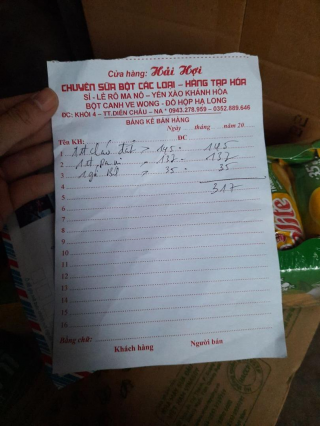 Cửa hàng: Hải Hợi
CHUYÊN SỮA BỘT CÁC LOẠI - HÀNG TẠP HÓA
SỈ - LẺ RÔ MA NÔ - YẾN XÀO KHÁNH HÒA
BỘT CANH VE WONG - ĐỒ HỘP HẠ LONG
ĐC: KHỐI 4 - TT.DIỄN CHÂU - NA * 0943.278.959 - 0352.889.646
BẢNG KÊ BÁN HÀNG
Ngày tháng năm 20
Tên KH: ĐC
1 1st 145 145
2 1st 137 137
3 35 35
4 317
5
6
7
8
9
10
11
12
13
14
15
16
Bằng chữ:
Khách hàng Người bán